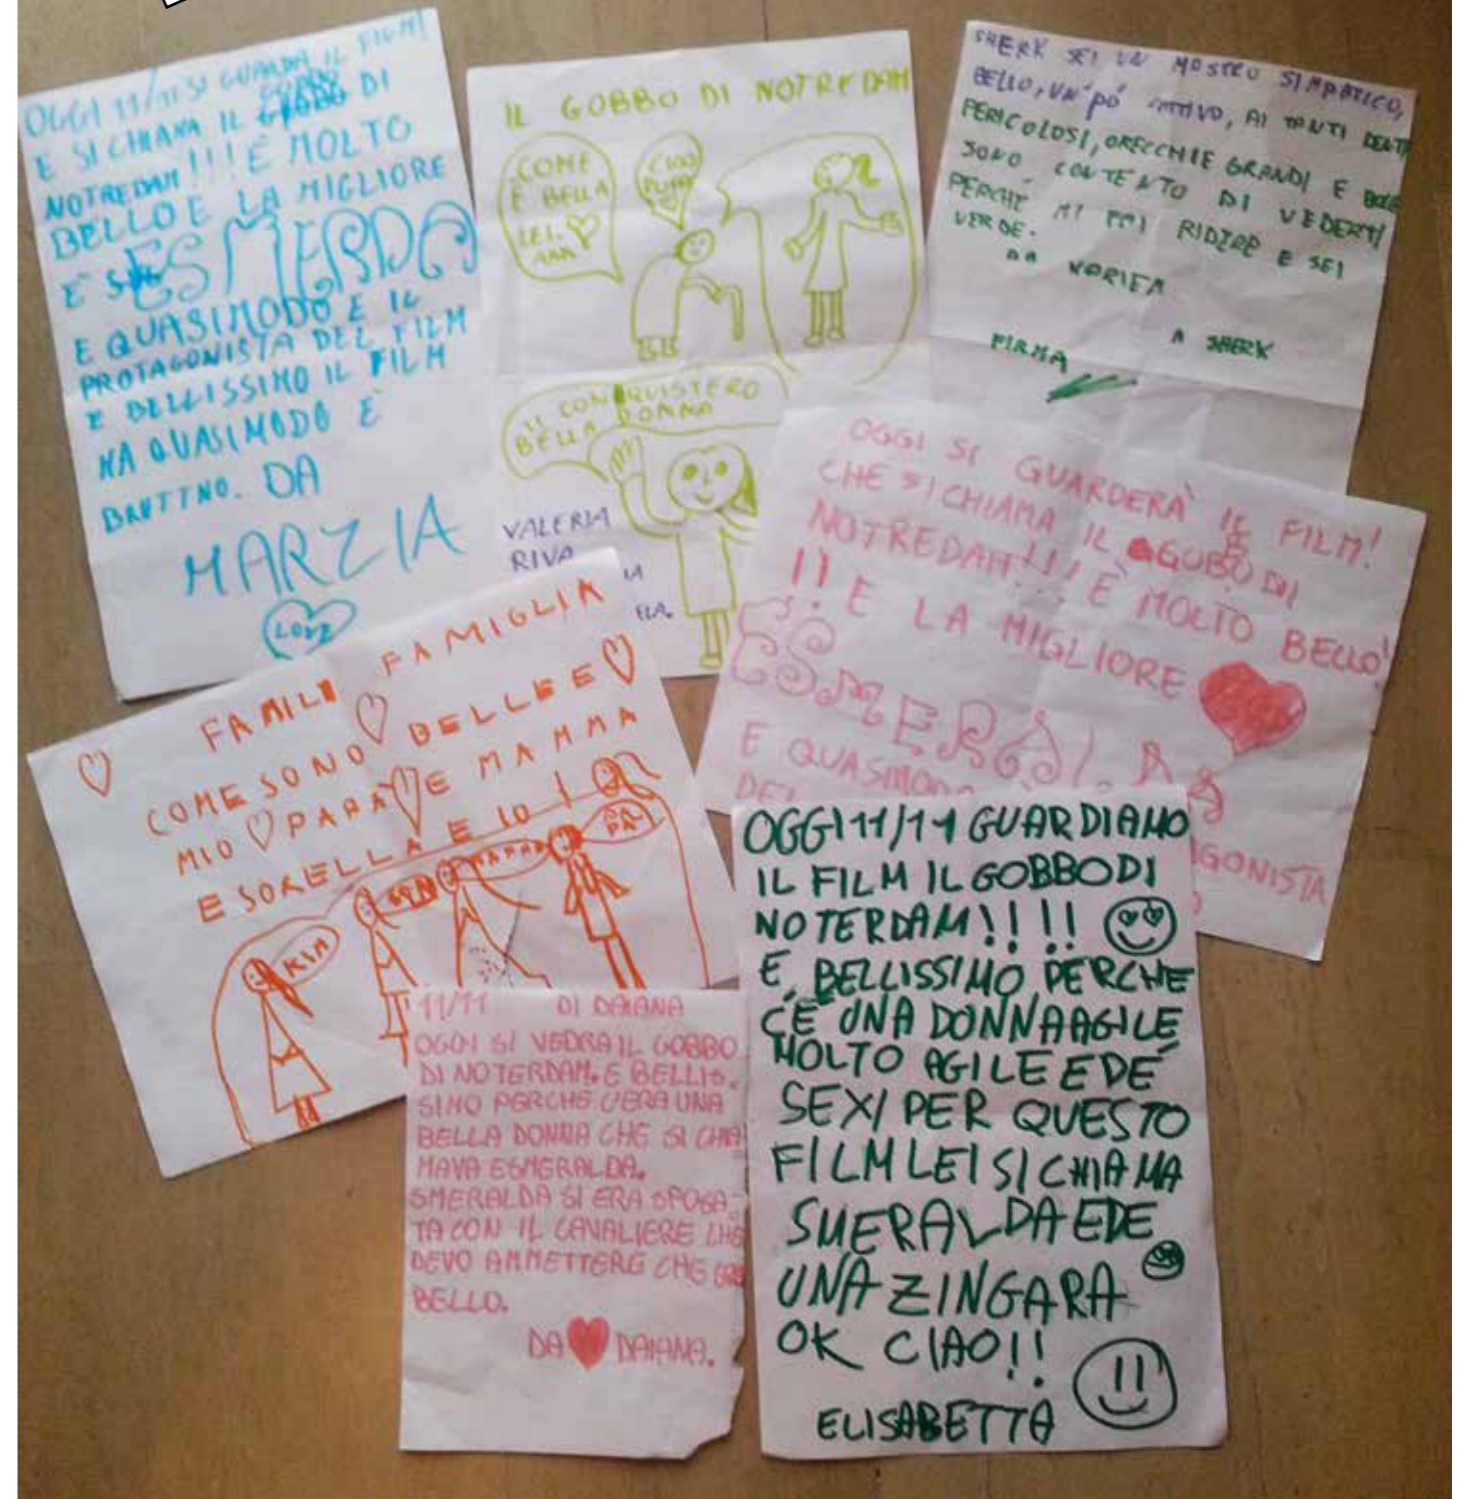 OGGI 11/11 SI GUARDA IL FILM!
E SI CHIAMA IL GOBBO DI
NOTREDAM!!! È MOLTO
BELLO E LA MIGLIORE
È
E QUASIMODO E IL
PROTAGONISTA DEL FILM
E BELLISSIMO IL FILM
MA QUASIMODO È
BRUTTNO. DA
MARZIA
LOVE
IL GOBBO DI NOTREDAM
COME
È BELLA
LEI.
CIAO
TI CONQUISTERO
BELLA DONNA
VALERIA
RIVA
SHERK SEI UN MOSTRO SIMPATICO,
BELLO, UN PÓ CATTIVO, AI TANTI DENTI
PERICOLOSI, ORECCHIE GRANDI E
SONO CONTENTO DI VEDERTI
PERCHÉ MI FAI RIDERE E SEI
VERDE.
DA
A SHERK
FIRMA
OGGI SI GUARDERÀ IL FILM!
CHE SI CHIAMA IL GOBO DI
NOTREDAM!!! È MOLTO BELLO!
!! E LA MIGLIORE
ESMERALDA
E QUASIMODO
DEL
FAMILI FAMIGLIA
COME SONO BELLE E
MIO PAPA E MAMMA
E SORELLA E IO
KIM
MAMMA
PA
11/11 DI DAIANA
OGGI SI VEDRA IL GOBBO
DI NOTERDAM. E BELLIS-
SIMO PERCHE C'ERA UNA
BELLA DONNA CHE SI CHIA
MAVA ESMGRALDA.
SMERALDA SI ERA SPOSA-
TA CON IL CAVALIERE CHE
DEVO AMMETTERE CHE
BELLO.
DA DAIANA.
OGGI 11/11 GUARDIAMO
IL FILM IL GOBBO DI
NOTERDAM!!!!
E BELLISSIMO PERCHE
C'È UNA DONNA AGILE
MOLTO AGILE ED É
SEXI PER QUESTO
FILM LEI SI CHIAMA
SMERALDA ED E
UNA ZINGARA
OK CIAO!!
ELISABETTA